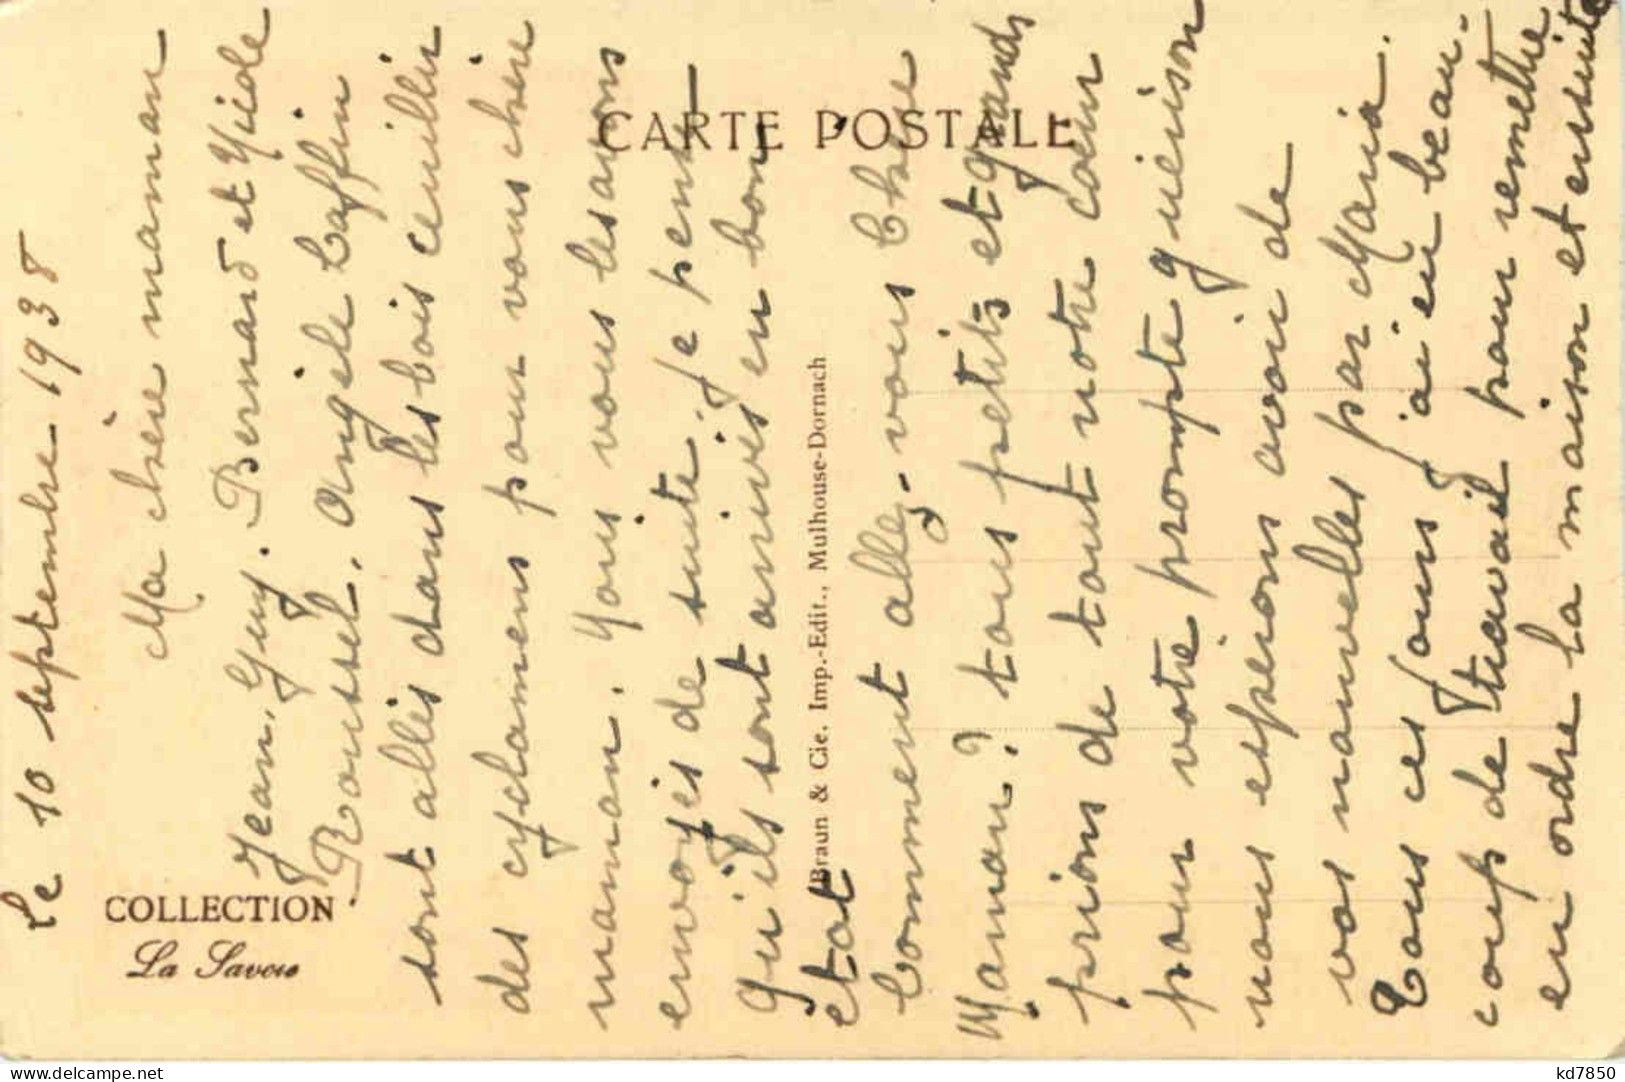 CARTE POSTALE
COLLECTION
La Savoie
Braun & Cie. Imp.-Edit., Mulhouse-Dornach
Le 10 septembre 1938
Ma chère maman
Jean, Guy. Bernard et
Roussel. Angèle Laffin
sont allés dans les bois cueillir
des cyclamens pour vous chère
maman. Nous vous les avons
envoyés de suite. Je pense
qu'ils sont arrivés en bon
état
Comment allez-vous Chère
Maman? tous petits et grands
prions de tout notre cœur
pour votre prompte guérison
nous espérons avoir de
vos nouvelles par Maria.
Tous ces jours j'ai eu beau-
coup de travail pour remettre
en ordre la maison et ensuite
kd7850